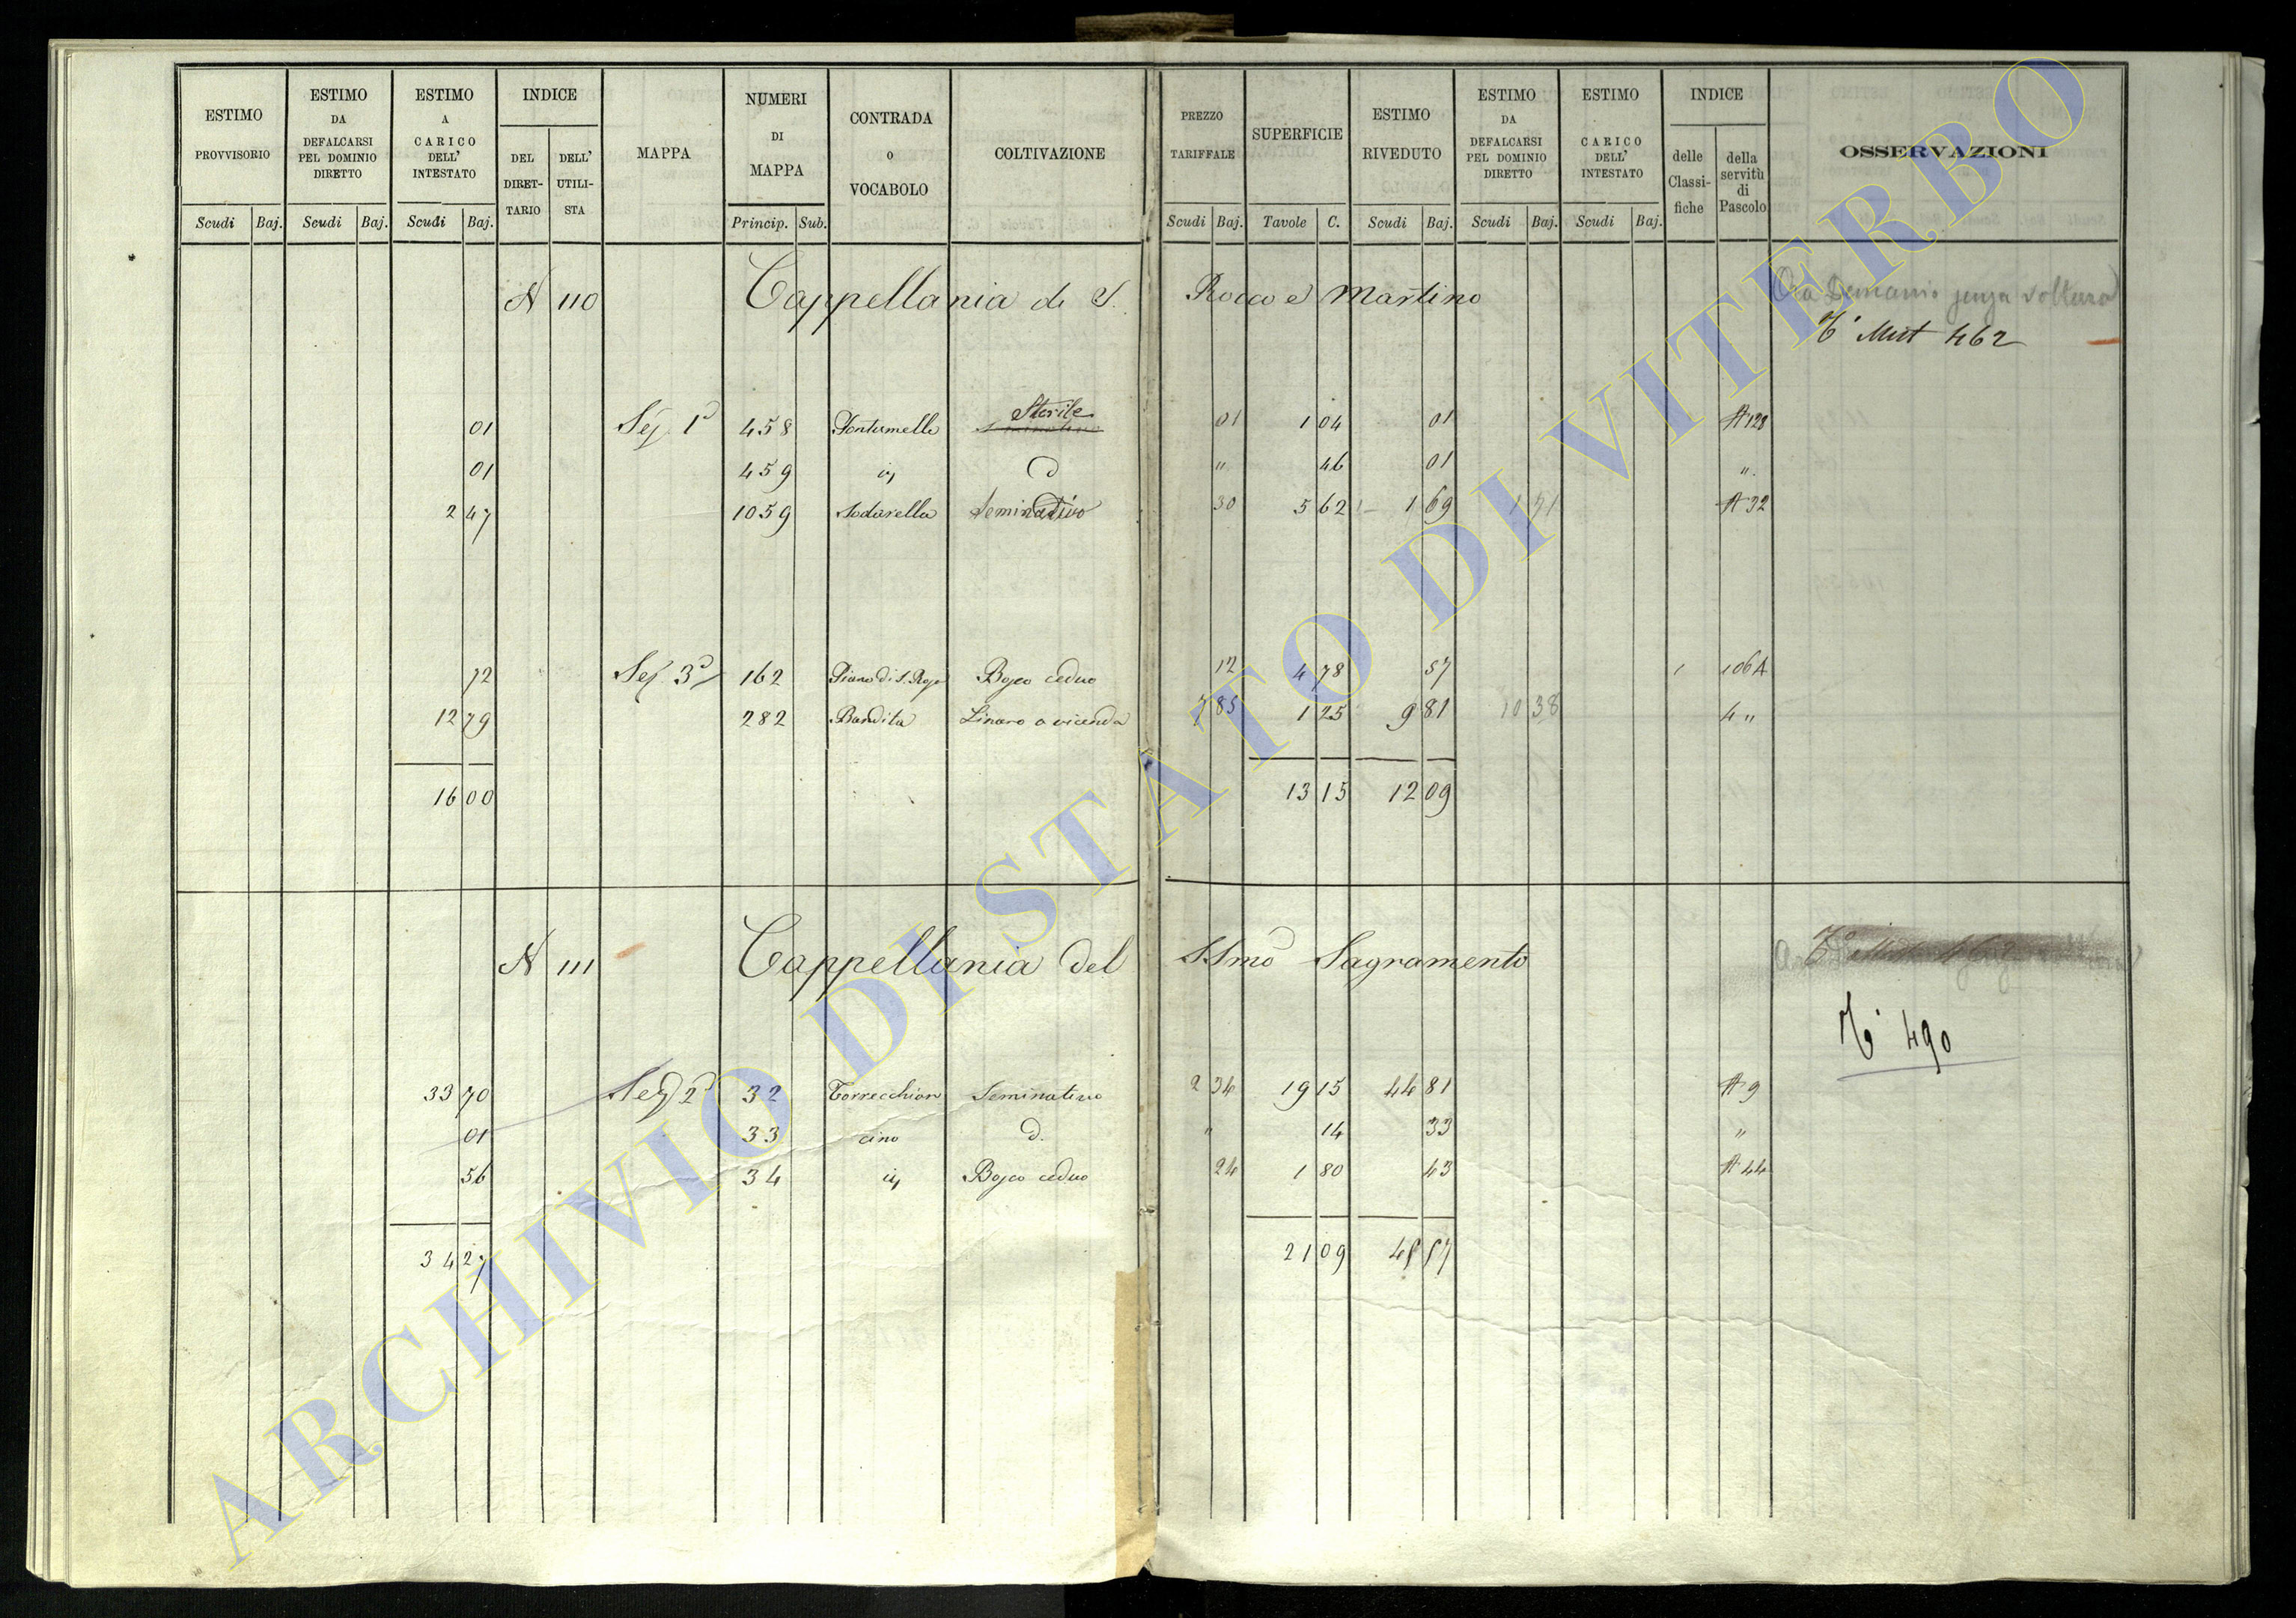 ESTIMO PROVVISORIO | ESTIMO DA DEFALCARSI PEL DOMINIO DIRETTO | ESTIMO A CARICO DELL' INTESTATO | INDICE DEL DIRET-TARIO | DELL' UTILI-STA | MAPPA | NUMERI DI MAPPA | CONTRADA O VOCABOLO | COLTIVAZIONE | PREZZO TARIFFALE | SUPERFICIE | ESTIMO RIVEDUTO | ESTIMO DA DEFALCARSI PEL DOMINIO DIRETTO | ESTIMO CARICO DELL' INTESTATO | INDICE delle Classi-fiche | della servitù di Pascolo | OSSERVAZIONI
Scudi Baj. Scudi Baj. Scudi Baj. Princip. Sub. Scudi Baj. Tavole C. Scudi Baj. Scudi Baj. Scudi Baj.
N 110 Cappellania di S. Rocco e Martino Ora Demanio senza voltura
Mist 462
01 Sez 1ª 458 Sterile 01 1 04 01 A 128
01 459 d 46 01 "
2 47 1059 Sodarella Seminativo 30 5 62 1 69 1 71 A 32
72 Sez 3ª 162 Piano di S. Bosco ceduo 12 4 78 57 1 106 A
12 79 282 Bandita Linaro a vicenda 7 85 1 25 9 81 10 38 4 "
16 00 13 15 12 09
N 111 Cappellania del SSmo Sagramento
490
33 70 Sez 2ª 32 Torrecchion Seminativo 2 34 19 15 44 81 A 9
01 33 cino d. " 14 33 "
56 34 Bosco ceduo 24 1 80 43 A 44
34 27 21 09 45 57
ARCHIVIO DI STATO DI VITERBO